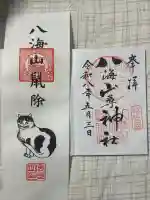 八海山鼠除
奉拝
八海山尊神社
令和八年五月三日